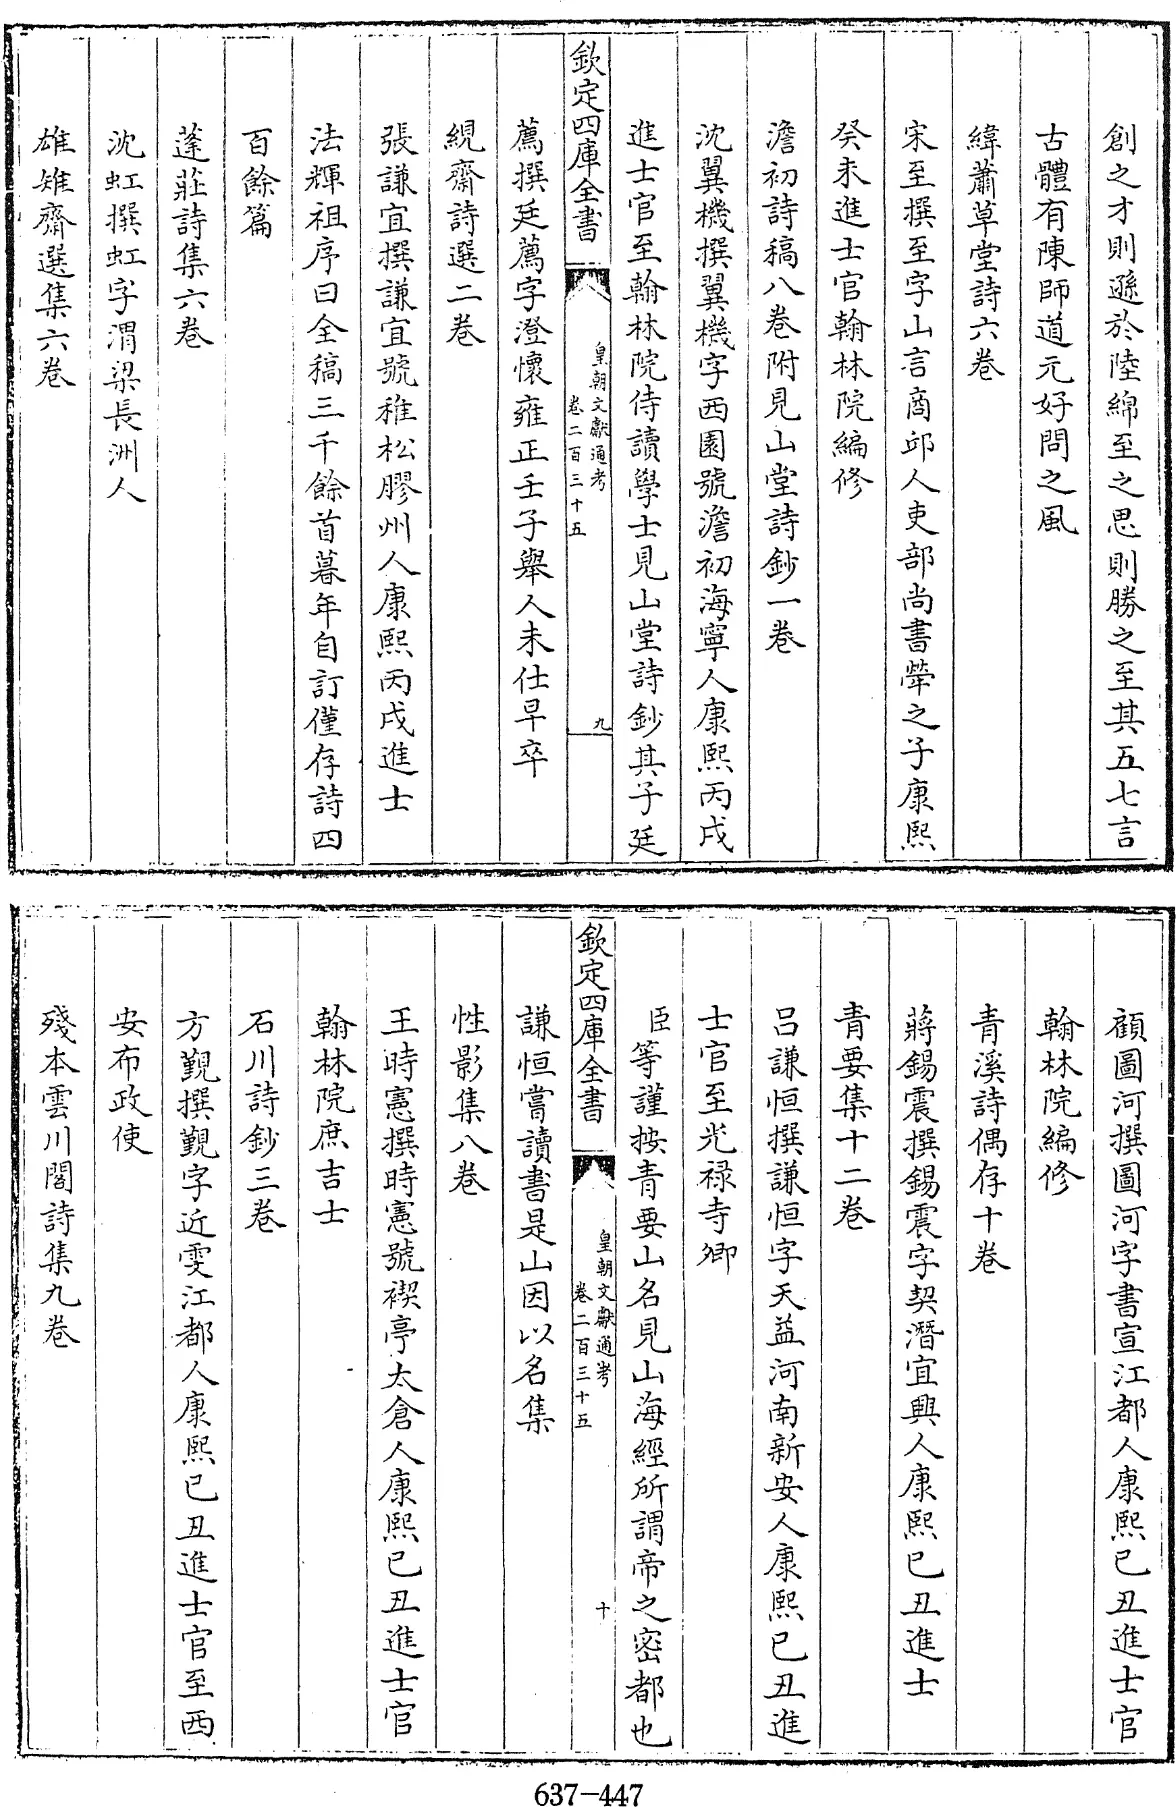 創之才則遜於陸綿至之思則勝之至其五七言
古體有陳師道元好問之風
緯蕭草堂詩六卷
宋至撰至字山言商邱人吏部尚書犖之子康熙
癸未進士官翰林院編修
澹初詩稿八卷附見山堂詩鈔一卷
沈翼機撰翼機字西園號澹初海寧人康熙丙戌
進士官至翰林院侍讀學士見山堂詩鈔其子廷
欽定四庫全書
皇朝文獻通考
卷二百三十五
九
薦撰廷薦字澄懷雍正壬子舉人未仕早卒
絸齋詩選二卷
張謙宜撰謙宜號稚松膠州人康熙丙戌進士
法輝祖序曰全稿三千餘首暮年自訂僅存詩四
百餘篇
蓬莊詩集六卷
沈虹撰虹字渭梁長洲人
雄雉齋選集六卷
顧圖河撰圖河字書宣江都人康熙己丑進士官
翰林院編修
青溪詩偶存十卷
蔣錫震撰錫震字契潛宜興人康熙己丑進士
青要集十二卷
呂謙恒撰謙恒字天益河南新安人康熙己丑進
士官至光禄寺卿
臣等謹按青要山名見山海經所謂帝之密都也
欽定四庫全書
皇朝文獻通考
卷二百三十五
十
謙恒嘗讀書是山因以名集
性影集八卷
王時憲撰時憲號禊亭太倉人康熙己丑進士官
翰林院庶吉士
石川詩鈔三卷
方覲撰覲字近雯江都人康熙己丑進士官至西
安布政使
殘本雲川閣詩集九卷
637-447